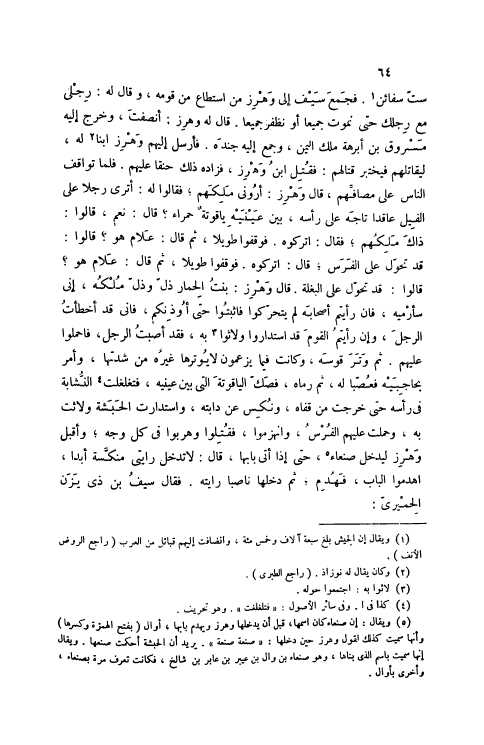 ٦٤
ستّ سفائن١ . فجمع سَيْف إلى وَهْرِز من استطاع من قومه ، وقال له : رِجْلى
مع رجلك حتى نموت جميعا أو نظفر جميعا . قال له وهرز : أنصفتَ ، وخرج إليه
مَسْروق بن أبرهة ملك اليمن ، وجمع إليه جندَه . فأرسل إليهم وَهْرز ابنا٢ له ،
ليقاتلهم فيختبر قتالهم : فقُتِل ابنُ وَهْرِز ، فزاده ذلك حنقا عليهم . فلما تواقف
الناس على مصافّهم ، قال وَهْرز : أرُونى مَلِكَهم ؛ فقالوا له : أترى رجلا على
الفيل عاقدا تاجَه على رأسه ، بين عَيْنَيْه ياقوتةٌ حمراء ؟ قال : نعم ، قالوا :
ذاك مَلِكُهم ؛ فقال : اتركوه . فوقفوا طويلا ، ثم قال : عَلام هو ؟ قالوا :
قد تحوّل على الفَرَس ؛ قال : اتركوه . فوقفوا طويلا ، ثم قال : عَلام هو ؟
قالوا : قد تحوّل على البغلة . قال وَهْرز : بنتُ الحمار ذلّ وذلّ مُلْكُه ، إنى
سأرميه ، فان رأيتم أصحابَه لم يتحرّكوا فاثبتُوا حتى أُوذِنَكم ، فانى قد أخطأتُ
الرجلَ ، وإن رأيتمُ القومَ قد استداروا ولاثوا٣ به ، فقد أصبتُ الرجل، فاحملوا
عليهم . ثم وتَرَ قوسَه ، وكانت فيما يزعمون لايُوترها غيرُه من شدتها ، وأمر
بحاجبَيْه فعُصِّبا له ، ثم رماه ، فصكّ الياقوتةَ التى بين عينيه ، فتغلغلت٤ النُّشابة
فى رأسه حتى خرجت من قفاه ، ونُكِس عن دابته ، واستدارت الحَبَشة ولاثت
به ، وحملت عليهم الفُرْسُ ، وانهزموا ، فقُتلوا وهربوا فى كل وجه ؛ وأقبل
وَهْرِز ليدخل صنعاء٥ ، حتى إذا أتى بابها ، قال : لاتدخل رايتى منكَّسة أبدا ،
اهدموا الباب ، فهُدِم ؛ ثم دخلها ناصبا رايته . فقال سيفُ بن ذى يَزَن
الحِمْيرىّ :
(١) ويقال إن الجيش بلغ سبعة آلاف وخمس مئة ، وانضافت إليهم قبائل من العرب ( راجع الروض
الأنف ) .
(٢) وكان يقال له نوزاذ . ( راجع الطبرى ) .
(٣) لاثوا به : اجتمعوا حوله .
(٤) كذا فى ا . وفى سائر الأصول : « فتغلغلت » . وهو تحريف .
(٥) ويقال : إن صنعاء كان اسمها، قبل أن يدخلها وهرز ويهدم بابها ، أوال ( بفتح الهمزة وكسرها )
وأنها سميت كذلك لقول وهرز حين دخلها : « صنعة صنعة » . يريد أن الحبشة أحكمت صنعها . ويقال
إنها سميت باسم الذى بناها ، وهو صنعاء بن وال بن عيبر بن عابر بن شالخ ، فكانت تعرف مرة بصنعاء ،
وأخرى بأوال .